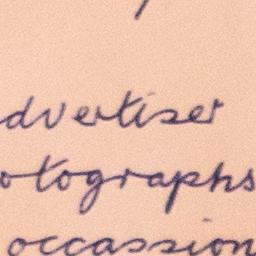 dvertiser
otographs
occassion